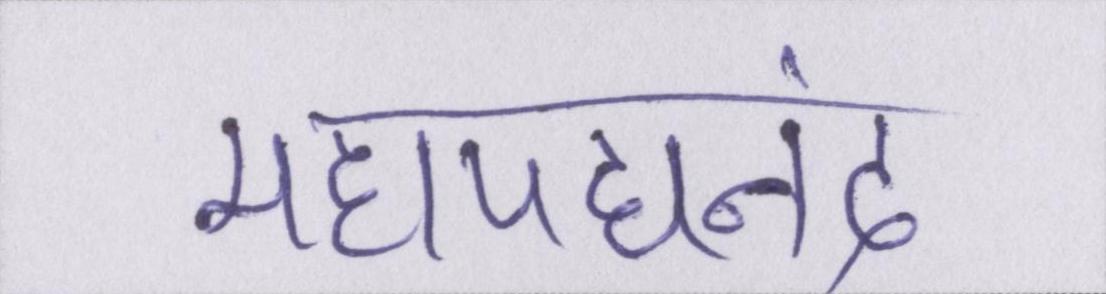 महापद्मनंद